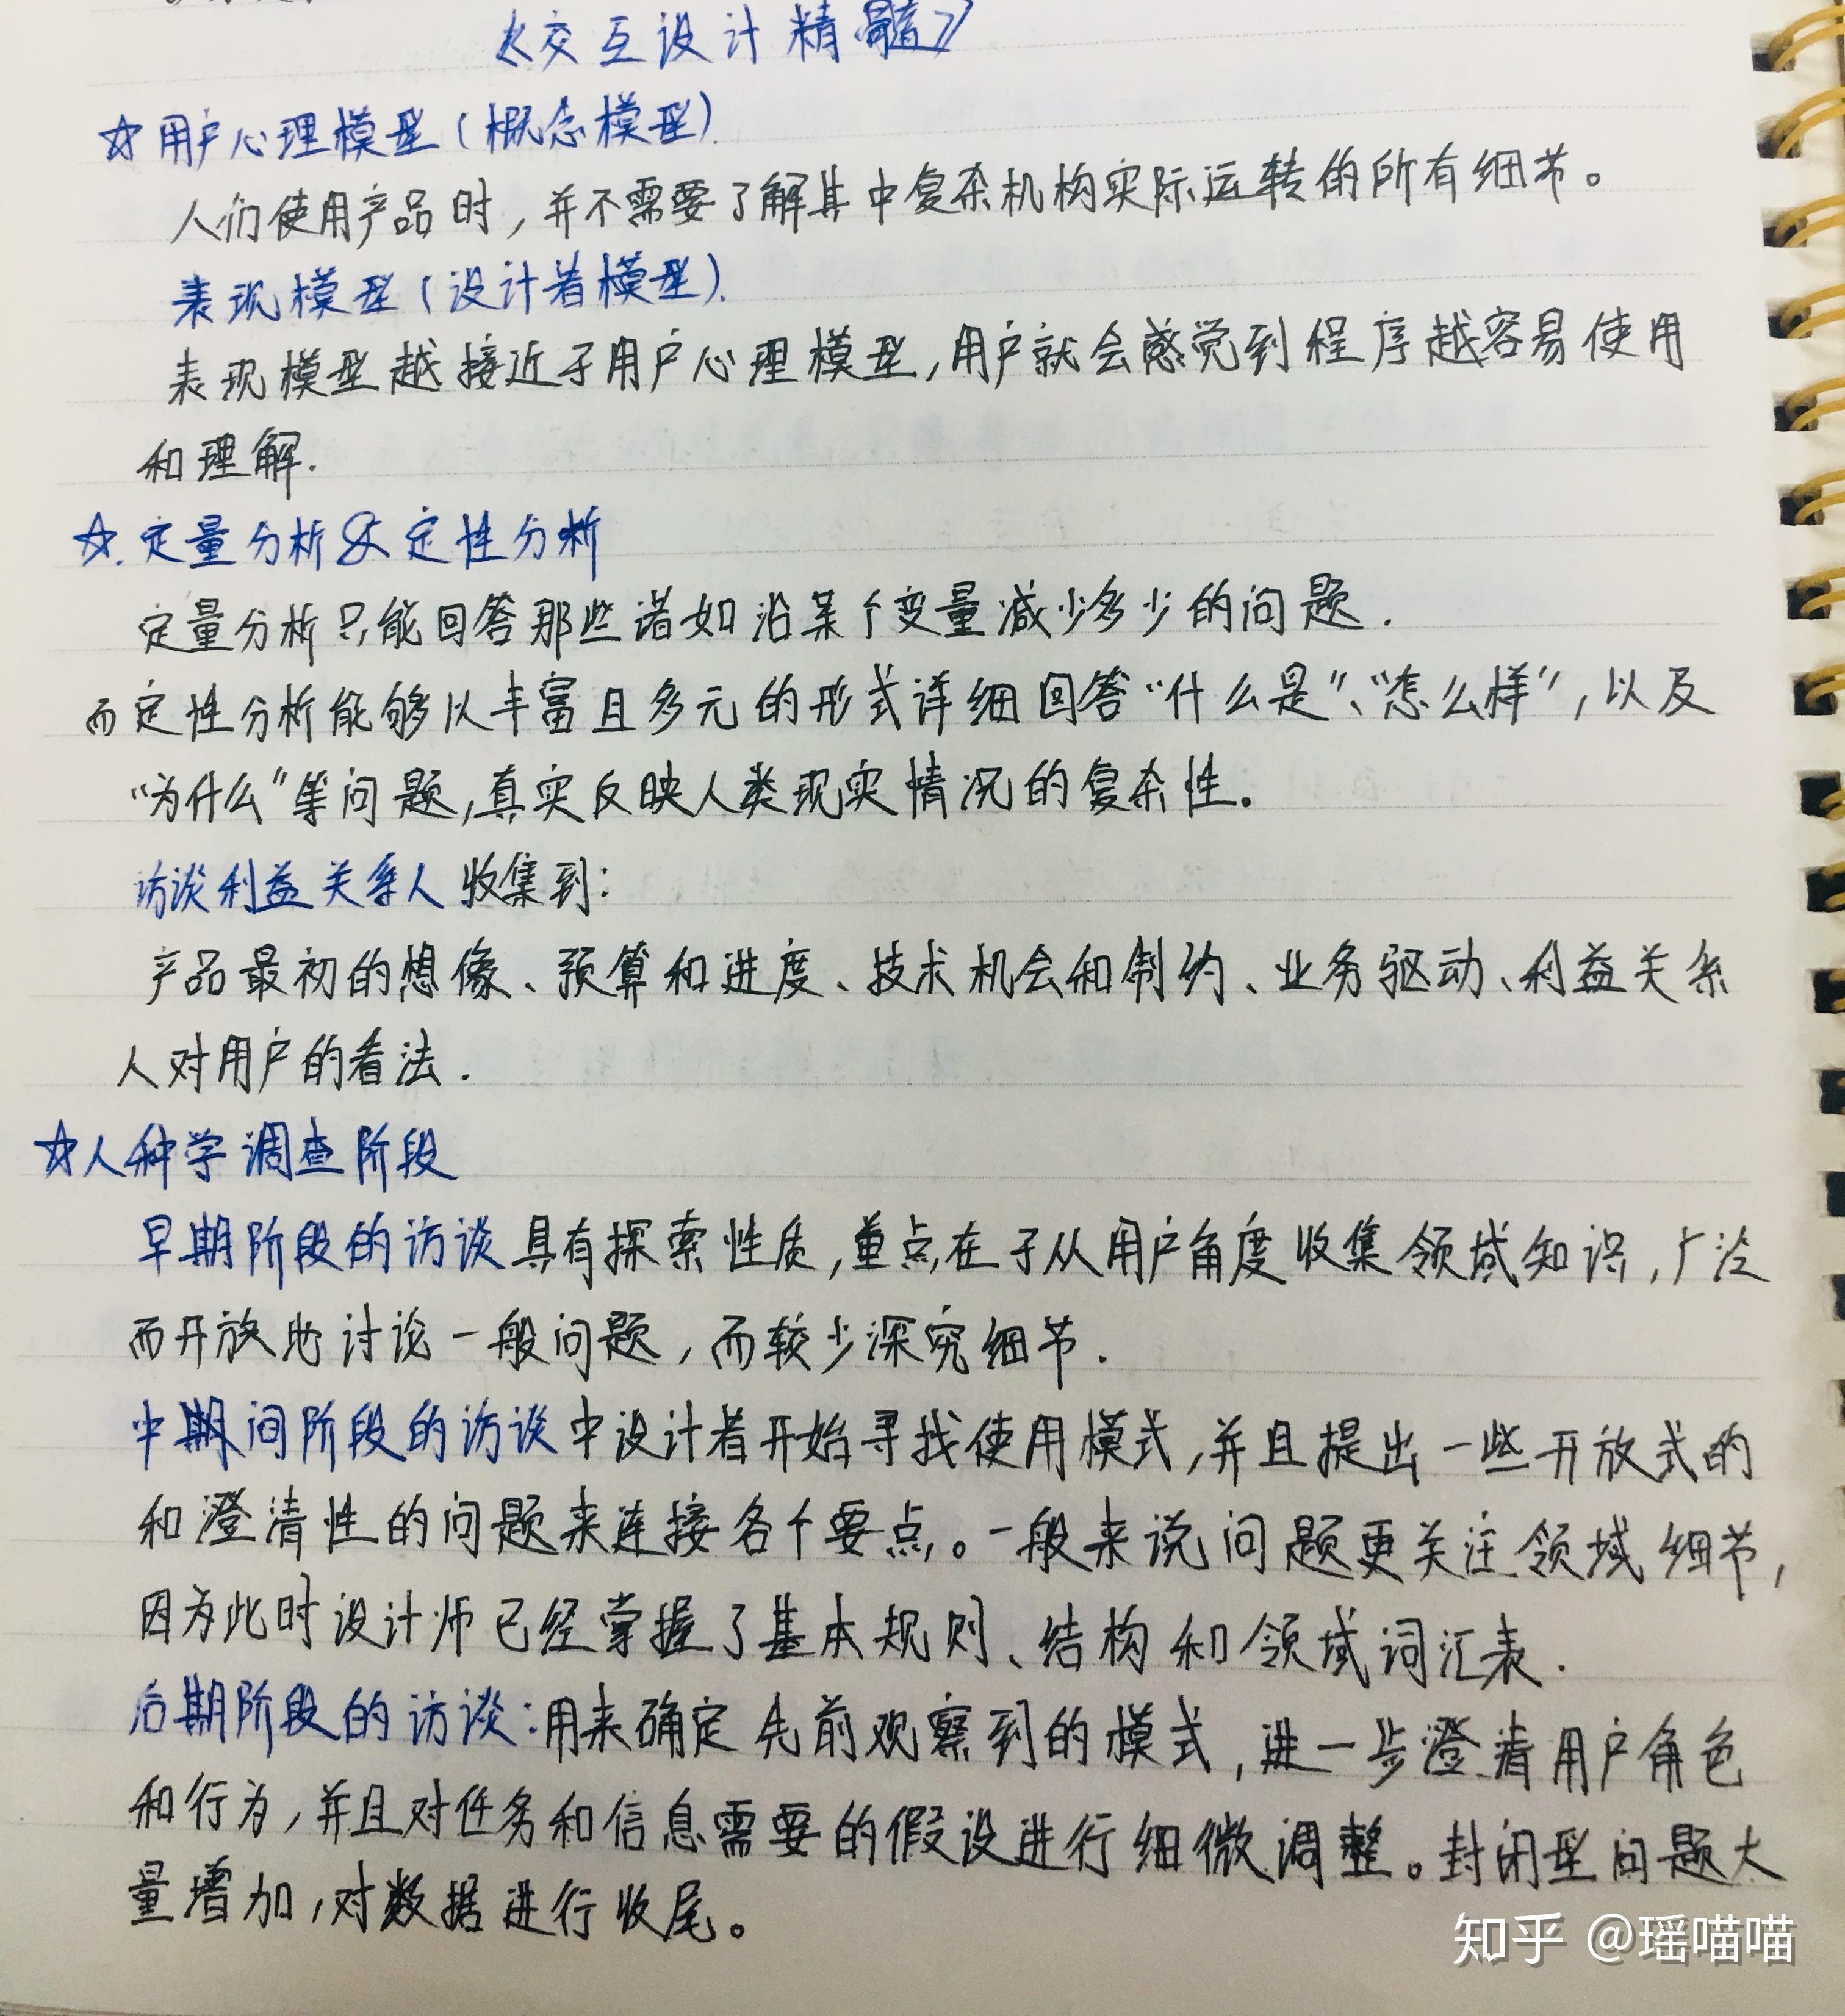 《交互设计精髓》
☆用户心理模型（概念模型）.
人们使用产品时，并不需要了解其中复杂机构实际运转的所有细节。
表现模型（设计者模型）.
表现模型越接近于用户心理模型，用户就会感觉到程序越容易使用
和理解.
☆.定量分析&定性分析
定量分析只能回答那些诸如沿某个变量减少多少的问题.
而定性分析能够以丰富且多元的形式详细回答“什么是”、“怎么样”，以及
“为什么”等问题，真实反映人类现实情况的复杂性。
访谈利益关系人收集到：
产品最初的想像、预算和进度、技术机会和制约、业务驱动、利益关系
人对用户的看法.
☆人种学调查阶段
早期阶段的访谈具有探索性质，重点在于从用户角度收集领域知识，广泛
而开放地讨论一般问题，而较少深究细节.
中期间阶段的访谈中设计者开始寻找使用模式，并且提出一些开放式的
和澄清性的问题来连接各个要点。一般来说问题更关注领域细节，
因为此时设计师已经掌握了基本规则、结构和领域词汇表.
后期阶段的访谈：用来确定先前观察到的模式，进一步澄清用户角色
和行为，并且对任务和信息需要的假设进行细微调整。封闭型问题大
量增加，对数据进行收尾。
知乎 @瑶喵喵